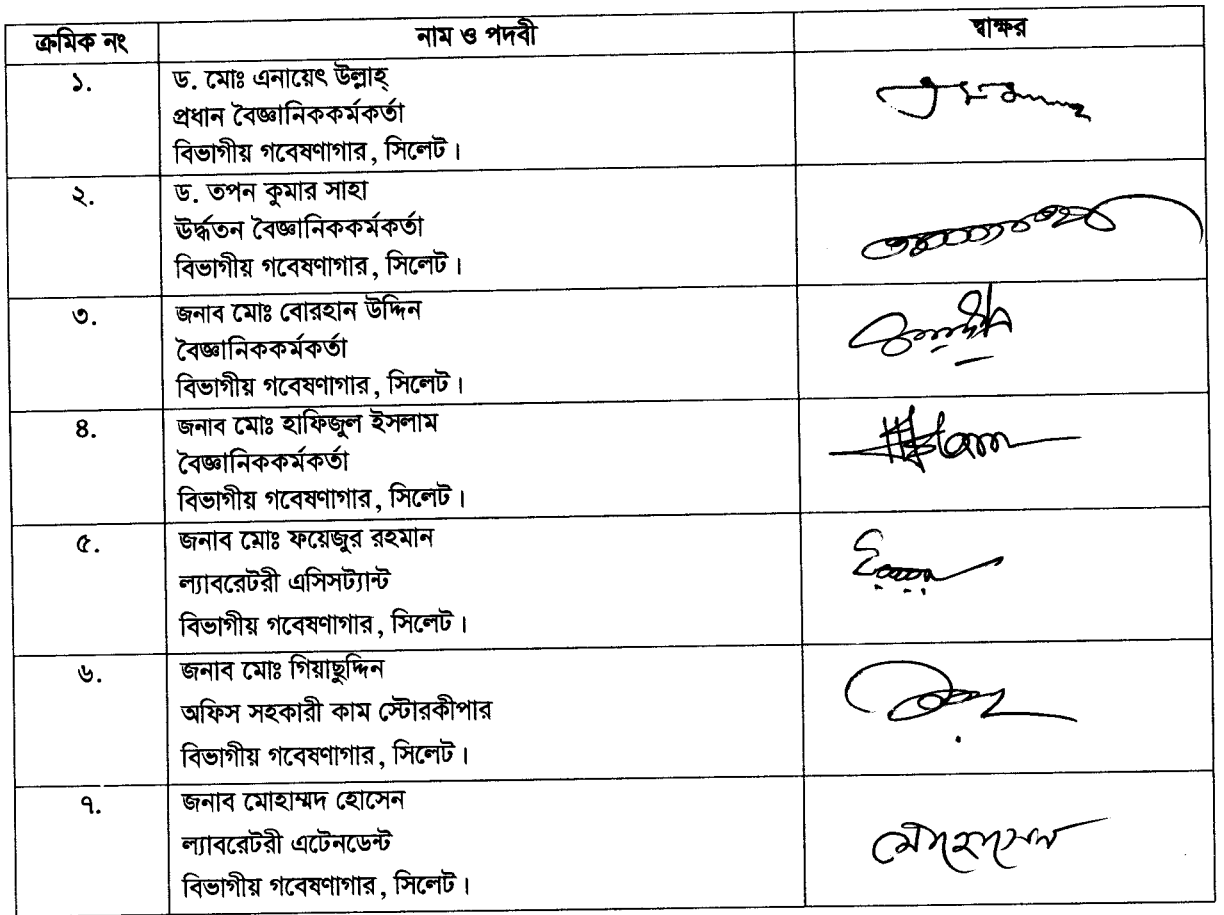 ক্রমিক নং নাম ও পদবী স্বাক্ষর
১. ড. মোঃ এনায়েৎ উল্লাহ্
প্রধান বৈজ্ঞানিককর্মকর্তা
বিভাগীয় গবেষণাগার, সিলেট।
২. ড. তপন কুমার সাহা
উর্দ্ধতন বৈজ্ঞানিককর্মকর্তা
বিভাগীয় গবেষণাগার, সিলেট।
৩. জনাব মোঃ বোরহান উদ্দিন
বৈজ্ঞানিককর্মকর্তা
বিভাগীয় গবেষণাগার, সিলেট।
৪. জনাব মোঃ হাফিজুল ইসলাম
বৈজ্ঞানিককর্মকর্তা
বিভাগীয় গবেষণাগার, সিলেট।
৫. জনাব মোঃ ফয়েজুর রহমান
ল্যাবরেটরী এসিসট্যান্ট
বিভাগীয় গবেষণাগার, সিলেট।
৬. জনাব মোঃ গিয়াছুদ্দিন
অফিস সহকারী কাম স্টোরকীপার
বিভাগীয় গবেষণাগার, সিলেট।
৭. জনাব মোহাম্মদ হোসেন
ল্যাবরেটরী এটেনডেন্ট
বিভাগীয় গবেষণাগার, সিলেট।